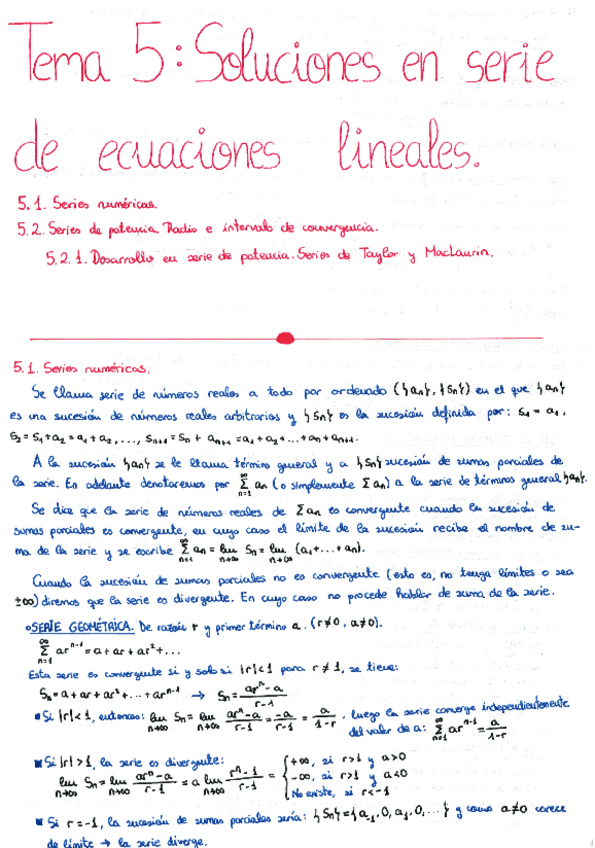 Tema 5: Soluciones en serie
de ecuaciones lineales.
5.1. Series numéricas.
5.2. Series de potencia. Radio e intervalo de convergencia.
5.2.1. Desarrollo en serie de potencia. Series de Taylor y MacLaurin.
5.1. Series numéricas.
Se llama serie de números reales a todo par ordenado ({an}, {Sn}) en el que {an}
es una sucesión de números reales arbitrarios y {Sn} es la sucesión definida por: S₁ = a₁,
S₂ = S₁ + a₂ = a₁ + a₂, ..., Sₙ₊₁ = Sₙ + aₙ₊₁ = a₁ + a₂ + ... + aₙ + aₙ₊₁.
A la sucesión {an} se le llama término general y a {Sn} sucesión de sumas parciales de
la serie. En adelante denotaremos por ∞Σn=1 an (o simplemente Σan) a la serie de términos general {an}.
Se dice que la serie de números reales de Σan es convergente cuando la sucesión de
sumas parciales es convergente, en cuyo caso el límite de la sucesión recibe el nombre de su-
ma de la serie y se escribe ∞Σn=1 an = lim n→∞ Sn = lim n→∞ (a₁ + ... + an).
Cuando la sucesión de sumas parciales no es convergente (esto es, no tenga límites o sea
±∞) diremos que la serie es divergente. En cuyo caso no procede hablar de suma de la serie.
SERIE GEOMÉTRICA. De razón r y primer término a. (r≠0, a≠0).
∞Σn=1 arⁿ⁻¹ = a + ar + ar² + ...
Esta serie es convergente si y solo si |r|<1 para r≠1, se tiene:
Sn = a + ar + ar² + ... + arⁿ⁻¹ → Sn = (arⁿ - a)/(r-1)
Si |r|<1, entonces: lim n→∞ Sn = lim n→∞ (arⁿ - a)/(r-1) = -a/(r-1) = a/(1-r), luego la serie converge independientemente
del valor de a: ∞Σn=1 arⁿ⁻¹ = a/(1-r)
Si |r|>1, la serie es divergente:
lim n→∞ Sn = lim n→∞ (arⁿ - a)/(r-1) = a lim n→∞ (rⁿ - 1)/(r-1) = { +∞, si r>1 y a>0
-∞, si r>1 y a<0
No existe, si r<-1
Si r=-1, la sucesión de sumas parciales sería: {Sn} = {a, 0, a, 0, ...} y como a≠0 carece
de límite → la serie diverge.